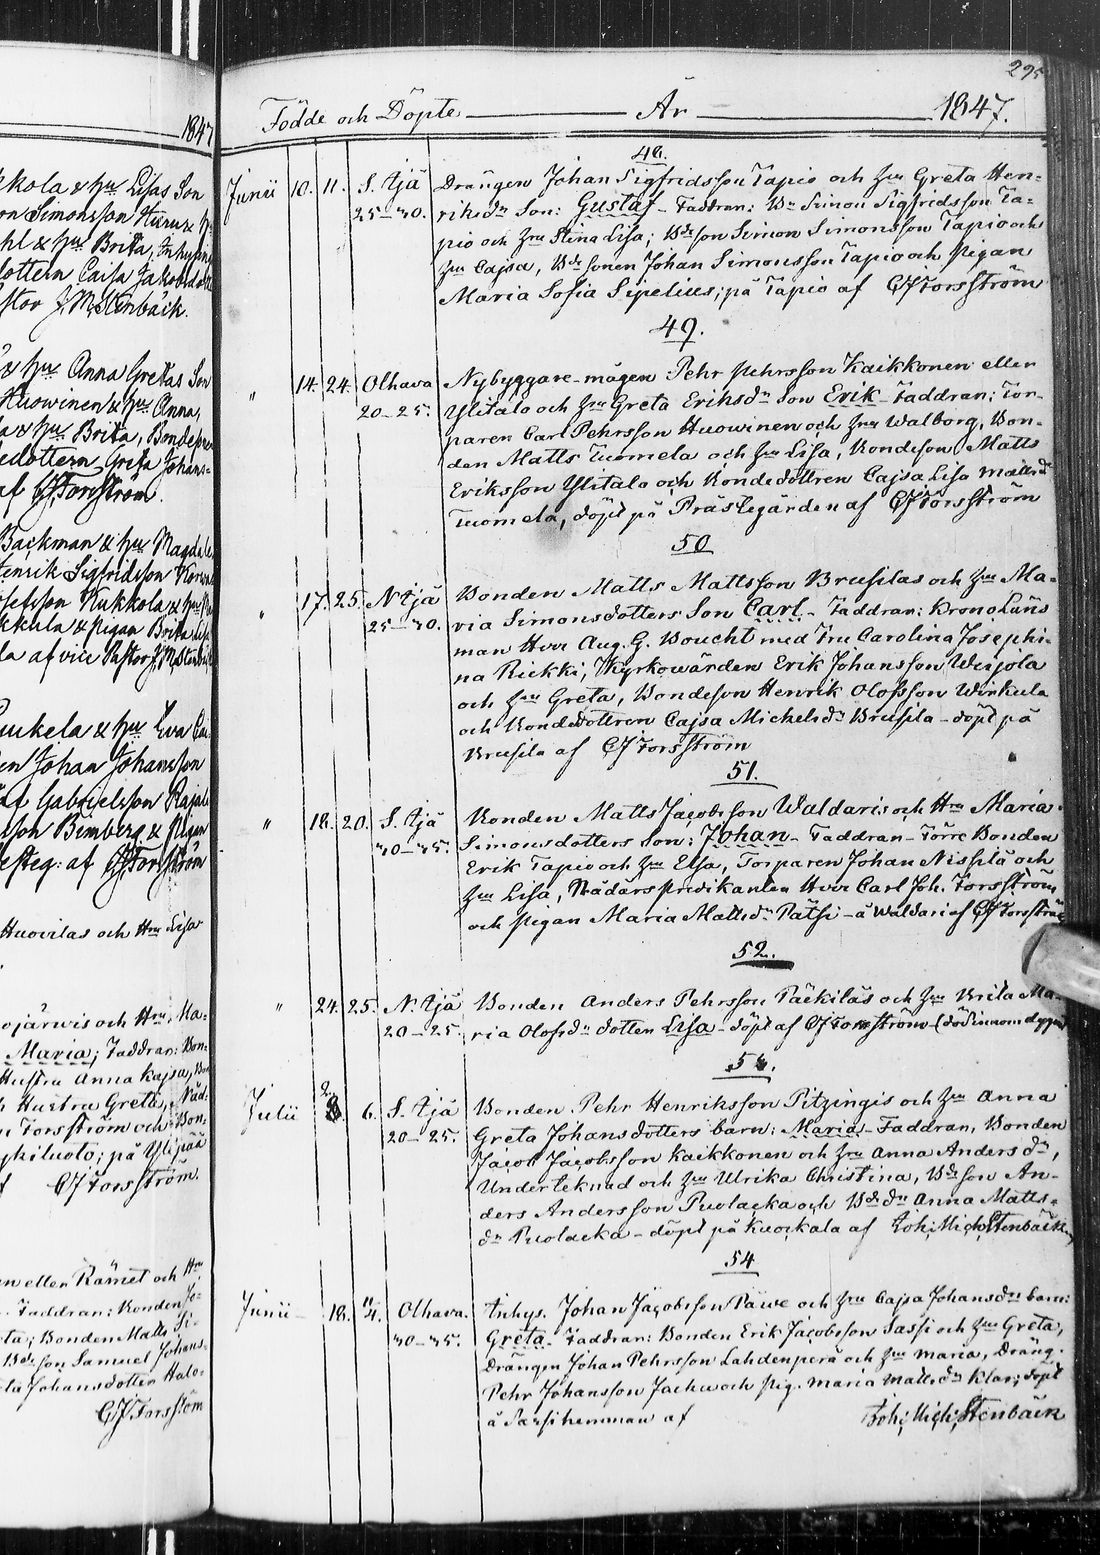 1847
kkola & hu Lisas Son
on Simonsson
hl & hu Brita, Inhyses
dottern Caisa Jakobsdotter
stor J. M. Stenbäck.
& hu Anna Gretas Son
Huowinen & hu Anna,
la & hu Brita, Bondesonen
edottern Greta Johans-
af CJForsström.
Backman & hu Magdale
Henrik Sigfridsson
sefsson Kukkola & hu
kkula & pigan Brita Lisa
la af vice Pastor J. M. Stenbäck
unkela & hu Eva
en Johan Johansson
af Gabrielsson Rajala
sson Bimberg & pigan
efteg: af CJForsström
Huovilas och Hru Lisa
ojärwis och Hru Ma-
Maria; Faddrar: Bon-
Hustru Anna Kajsa,
h Hustru Greta, Nåd-
Forsström och Bon-
yhiluoto; på Ylipää
CJForsström.
en eller Rämet och Hru
Faddrar: Bonden
Bonden Matts Si-
Bde son Samuel Johans-
Johansdotter Halo-
CJForsström
295
Födde och Döpte År 1847.
48.
Junii 10. 11. S. Ijä Drängen Johan Sigfridsson Tapio och hru Greta Hen-
25-30. riksdr Son: Gustaf - Faddrar: Bn Simon Sigfridsson Ta-
pio och hru Stina Lisa; Bde son Simon Simonsson Tapio och
hru Cajsa, Bde sonen Johan Simonsson Tapio och pigan
Maria Sofia Sipelius; på Tapio af CJForsström
49.
" 14. 24. Olhava Nybyggare-mågen Pehr Pehrsson Kaikkonen eller
20-25. Ylitalo och hru Greta Eriksdr Son Erik - Faddrar: Tor-
paren Carl Pehrsson Huowinen och hru Walborg, Bon-
den Matts Tuomela och hru Lisa, Bondeson Matts
Eriksson Ylitalo och Bondedottren Cajsa Lisa Mattsdr
Tuomela, döpt på Prästegården af CJForsström
50
" 17. 25. N Ijä Bonden Matts Mattsson Brusilas och hru Ma-
25-30. ria Simonsdotters Son Carl - Faddrar: Krono Läns
man Herr Aug. G. Boucht med Fru Carolina Josephi-
na Rickki; Kyrkowärden Erik Johansson Weijola
och hru Greta, Bondeson Henrik Olofsson Wirkula
och Bondedottren Cajsa Michelsdr Brusila - döpt på
Brusila af CJForsström
51.
" 18. 20. S. Ijä Bonden Matts Jacobsson Waldaris och Hru Maria
30-35. Simonsdotters Son: Johan - Faddrar - Förre Bonden
Erik Tapio och hru Elsa, Torparen Johan Nissilä och
hru Lisa, Nådårspredikanten Herr Carl Joh. Forsström
och pigan Maria Mattsdr Pätsi - å Waldari af CJForsström
52.
" 24. 25. N. Ijä Bonden Anders Pehrsson Päckiläs och hru Brita Ma-
20-25. ria Olofsdr dotter Lisa - döpt af CJForsström (död innom dygnet)
53.
Julii 2 6. S. Ijä Bonden Pehr Henriksson Pitzingis och hru Anna
20-25. Greta Johansdotters barn: Maria - Faddrar, Bonden
Jacob Jacobsson Kaikkonen och hru Anna Andersdr,
Underteknad och hru Ulrika Christina, Bde son An-
ders Andersson Puolacka och Bde dr Anna Matts-
dr Puolacka - döpt på Kuockala af Joh: Mich: Stenbäck
54
Junii 18. 11/4. Olhava. Inhys. Johan Jacobsson Päwe och hru Cajsa Johansdrs barn:
30-35. Greta - Faddrar: Bonden Erik Jacobsson Sassi och hru Greta,
Drängen Johan Pehrsson Lahdenperä och hru Maria, Dräng.
Pehr Johansson Jacku och pig. Maria Mattsdr Klar; döpt
å Sassi hemman af Joh: Mich: Stenbäck